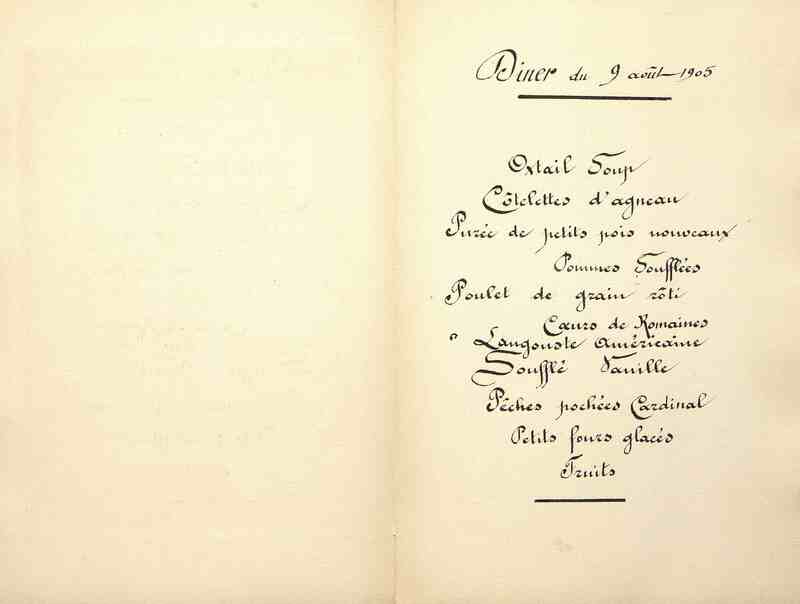 Dîner du 9 août 1905
Oxtail Soup
Côtelettes d'agneau
Purée de petits pois nouveaux
Pommes Soufflées
Poulet de grain rôti
Cœurs de Romaines
Langouste Américaine
Soufflé Vanille
Pêches pochées Cardinal
Petits fours glacés
Fruits